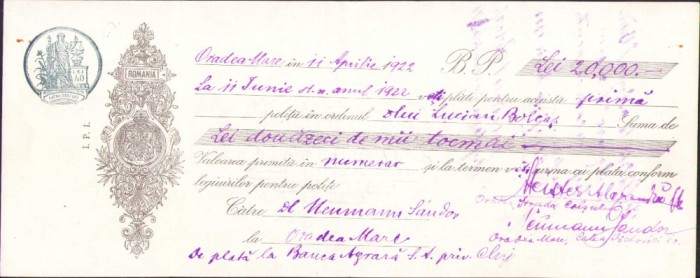 ROMANIA
I. P. I.
Oradea-Mare în 11 Aprilie 1922 B. P. Lei 20,000.—
La 11 Iunie st. n. anul 1922 veți plăti pentru aceasta primă
poliță în ordinul dlui Lucian Bolcaș Suma de
Lei douăzeci de mii tocmai
Valoarea primită în numerar și la termen veți urma cu plata conform
legiuirilor pentru polițe
Către Dl Neumann Sándor
la Oradea Mare
De plată la Banca Agrară S. A. priv. Cluj
Oradea Strada
Neumann Sándor
Oradea Mare, Calea